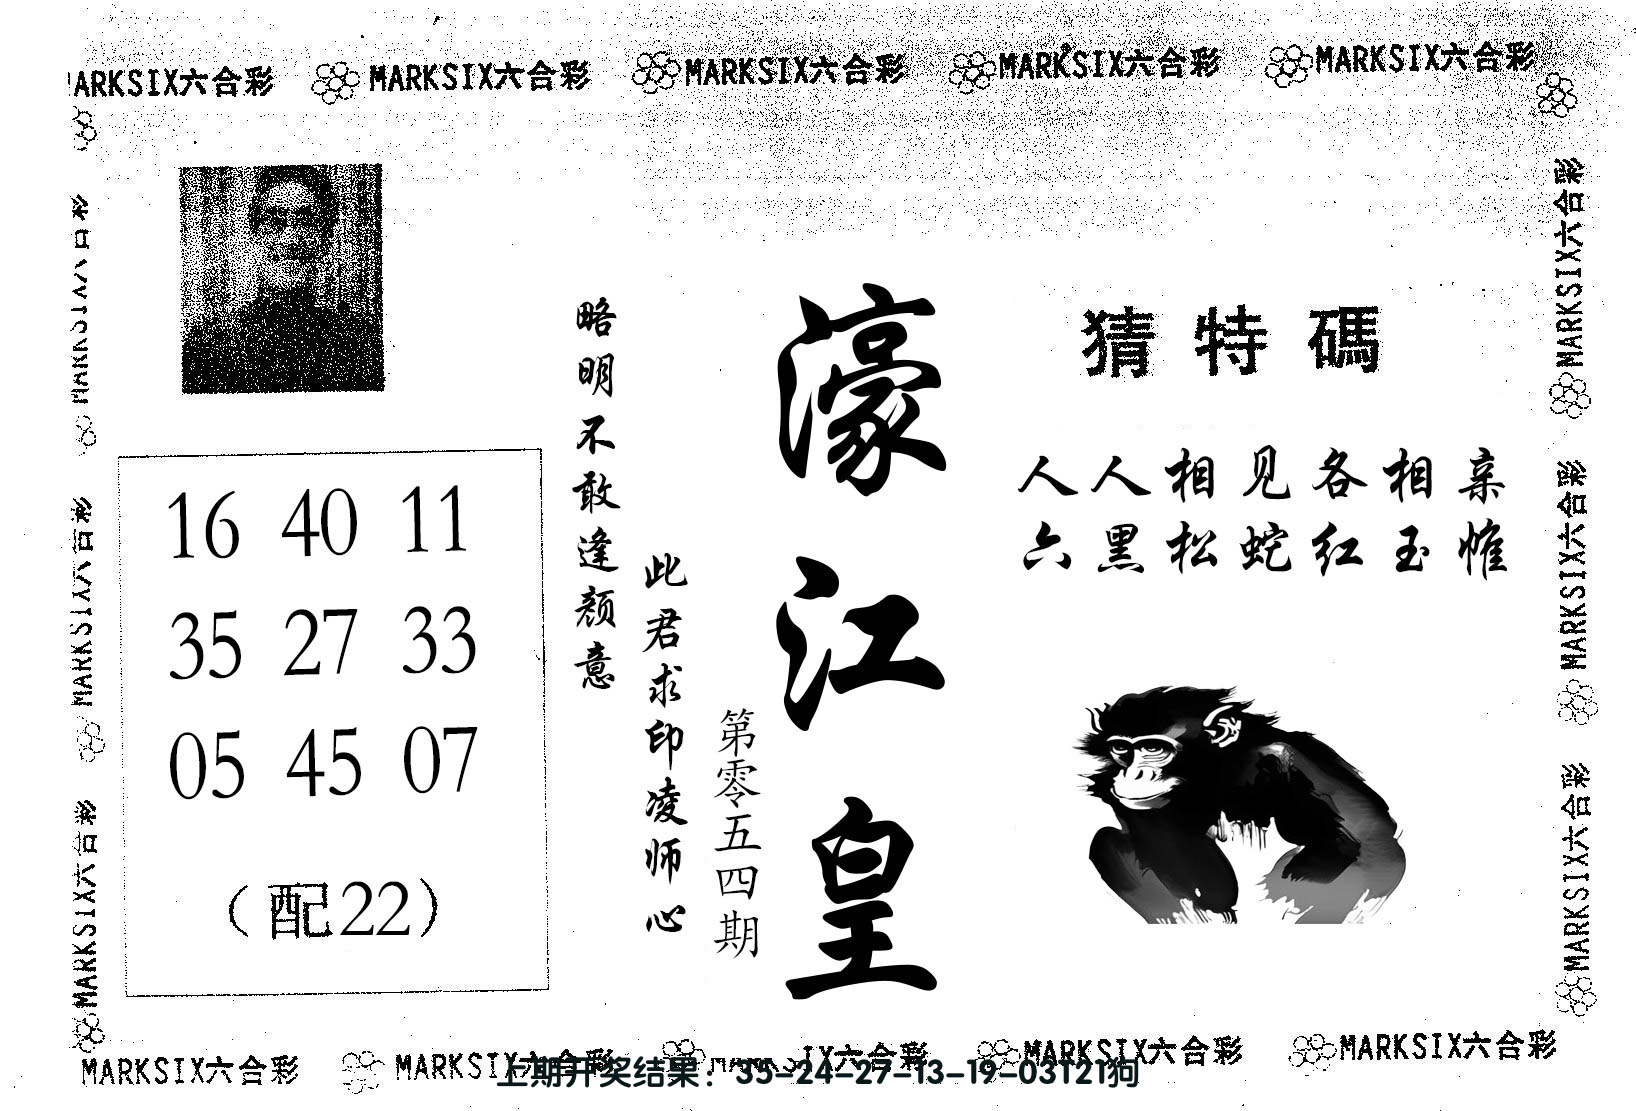 MARKSIX六合彩 MARKSIX六合彩 MARKSIX六合彩 MARKSIX六合彩 MARKSIX六合彩
猜特碼
人人相见各相亲
六黑松蛇红玉帷
濠江皇
第零五四期
此君求印凌师心
略明不敢逢颜意
16 40 11
35 27 33
05 45 07
(配22)
MARKSIX六合彩
MARKSIX六合彩
MARKSIX六合彩
MARKSIX六合彩
MARKSIX六合彩
MARKSIX六合彩
MARKSIX六合彩 MARKSIX六合彩 MARKSIX六合彩 MARKSIX六合彩 MARKSIX六合彩
上期开奖结果：35-24-27-13-19-03T21狗